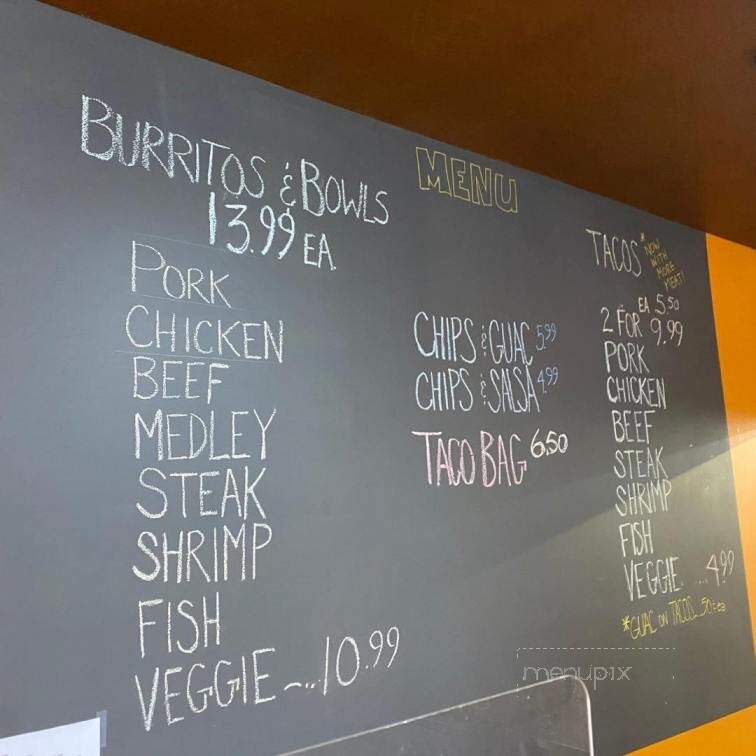 MENU
BURRITOS & BOWLS
13.99 EA.
PORK
CHICKEN
BEEF
MEDLEY
STEAK
SHRIMP
FISH
VEGGIE ~...10.99
CHIPS & GUAC 5.99
CHIPS & SALSA 4.99
TACO BAG 6.50
TACOS
*NOW
WITH
MORE
MEAT!
EA 5.50
2 FOR 9.99
PORK
CHICKEN
BEEF
STEAK
SHRIMP
FISH
VEGGIE ...4.99
*GUAC ON TACOS .50¢ ea
menupix